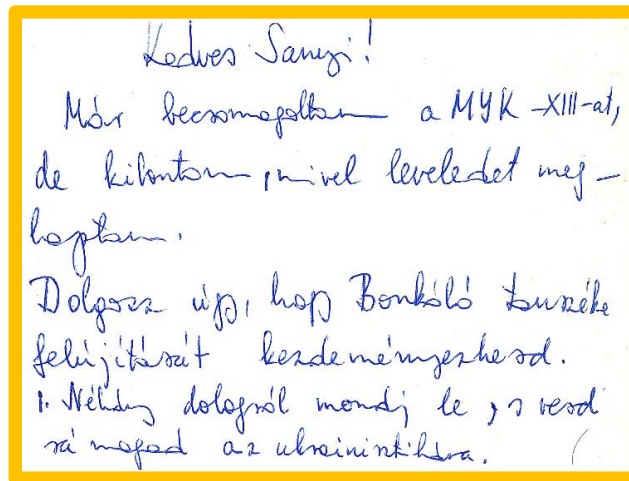 Kedves Sanyi!
Már becsomagoltam a MYK -XIII-at,
de kibontom, mivel leveledet meg-
kaptam.
Dolgozz úgy, hogy Bonkáló tanszéke
felújítását kezdeményezhesd.
1. Néhány dologról mondj le, s vesd
rá magad az ukrainisztikára.